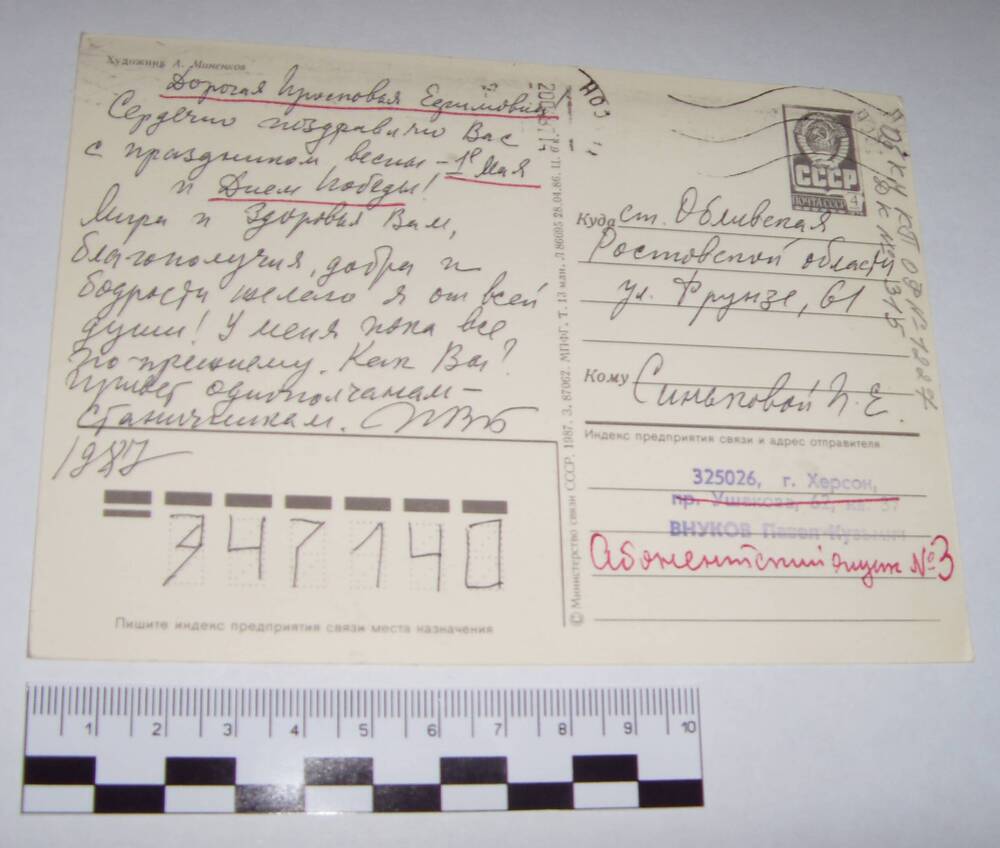 Художник А. Миненков
Дорогая Просковья Ефимовна
Сердечно поздравляю Вас
с праздником весны – 1е Мая
и Днем Победы!
Мира и Здоровья Вам,
благополучия, добра и
бодрости желаю я от всей
души! У меня пока все
по-прежнему. Как Вы?
Привет однополчанам –
станичникам.
1987
347140
Пишите индекс предприятия связи места назначения
© Министерство связи СССР, 1987. З. 87062. МПФГ. Т. 13 млн. Л 86095 28.04.86. Ц. 6 к.
СССР
ПОЧТА СССР 4
Куда ст. Обливская
Ростовской области
ул. Фрунзе, 61
Кому Синьковой П. Е.
Индекс предприятия связи и адрес отправителя
325026, г. Херсон,
пр. Ушакова, 62, кв. 37
ВНУКОВ Павел Кузьмич
Абонентский ящик № 3
1 2 3 4 5 6 7 8 9 10